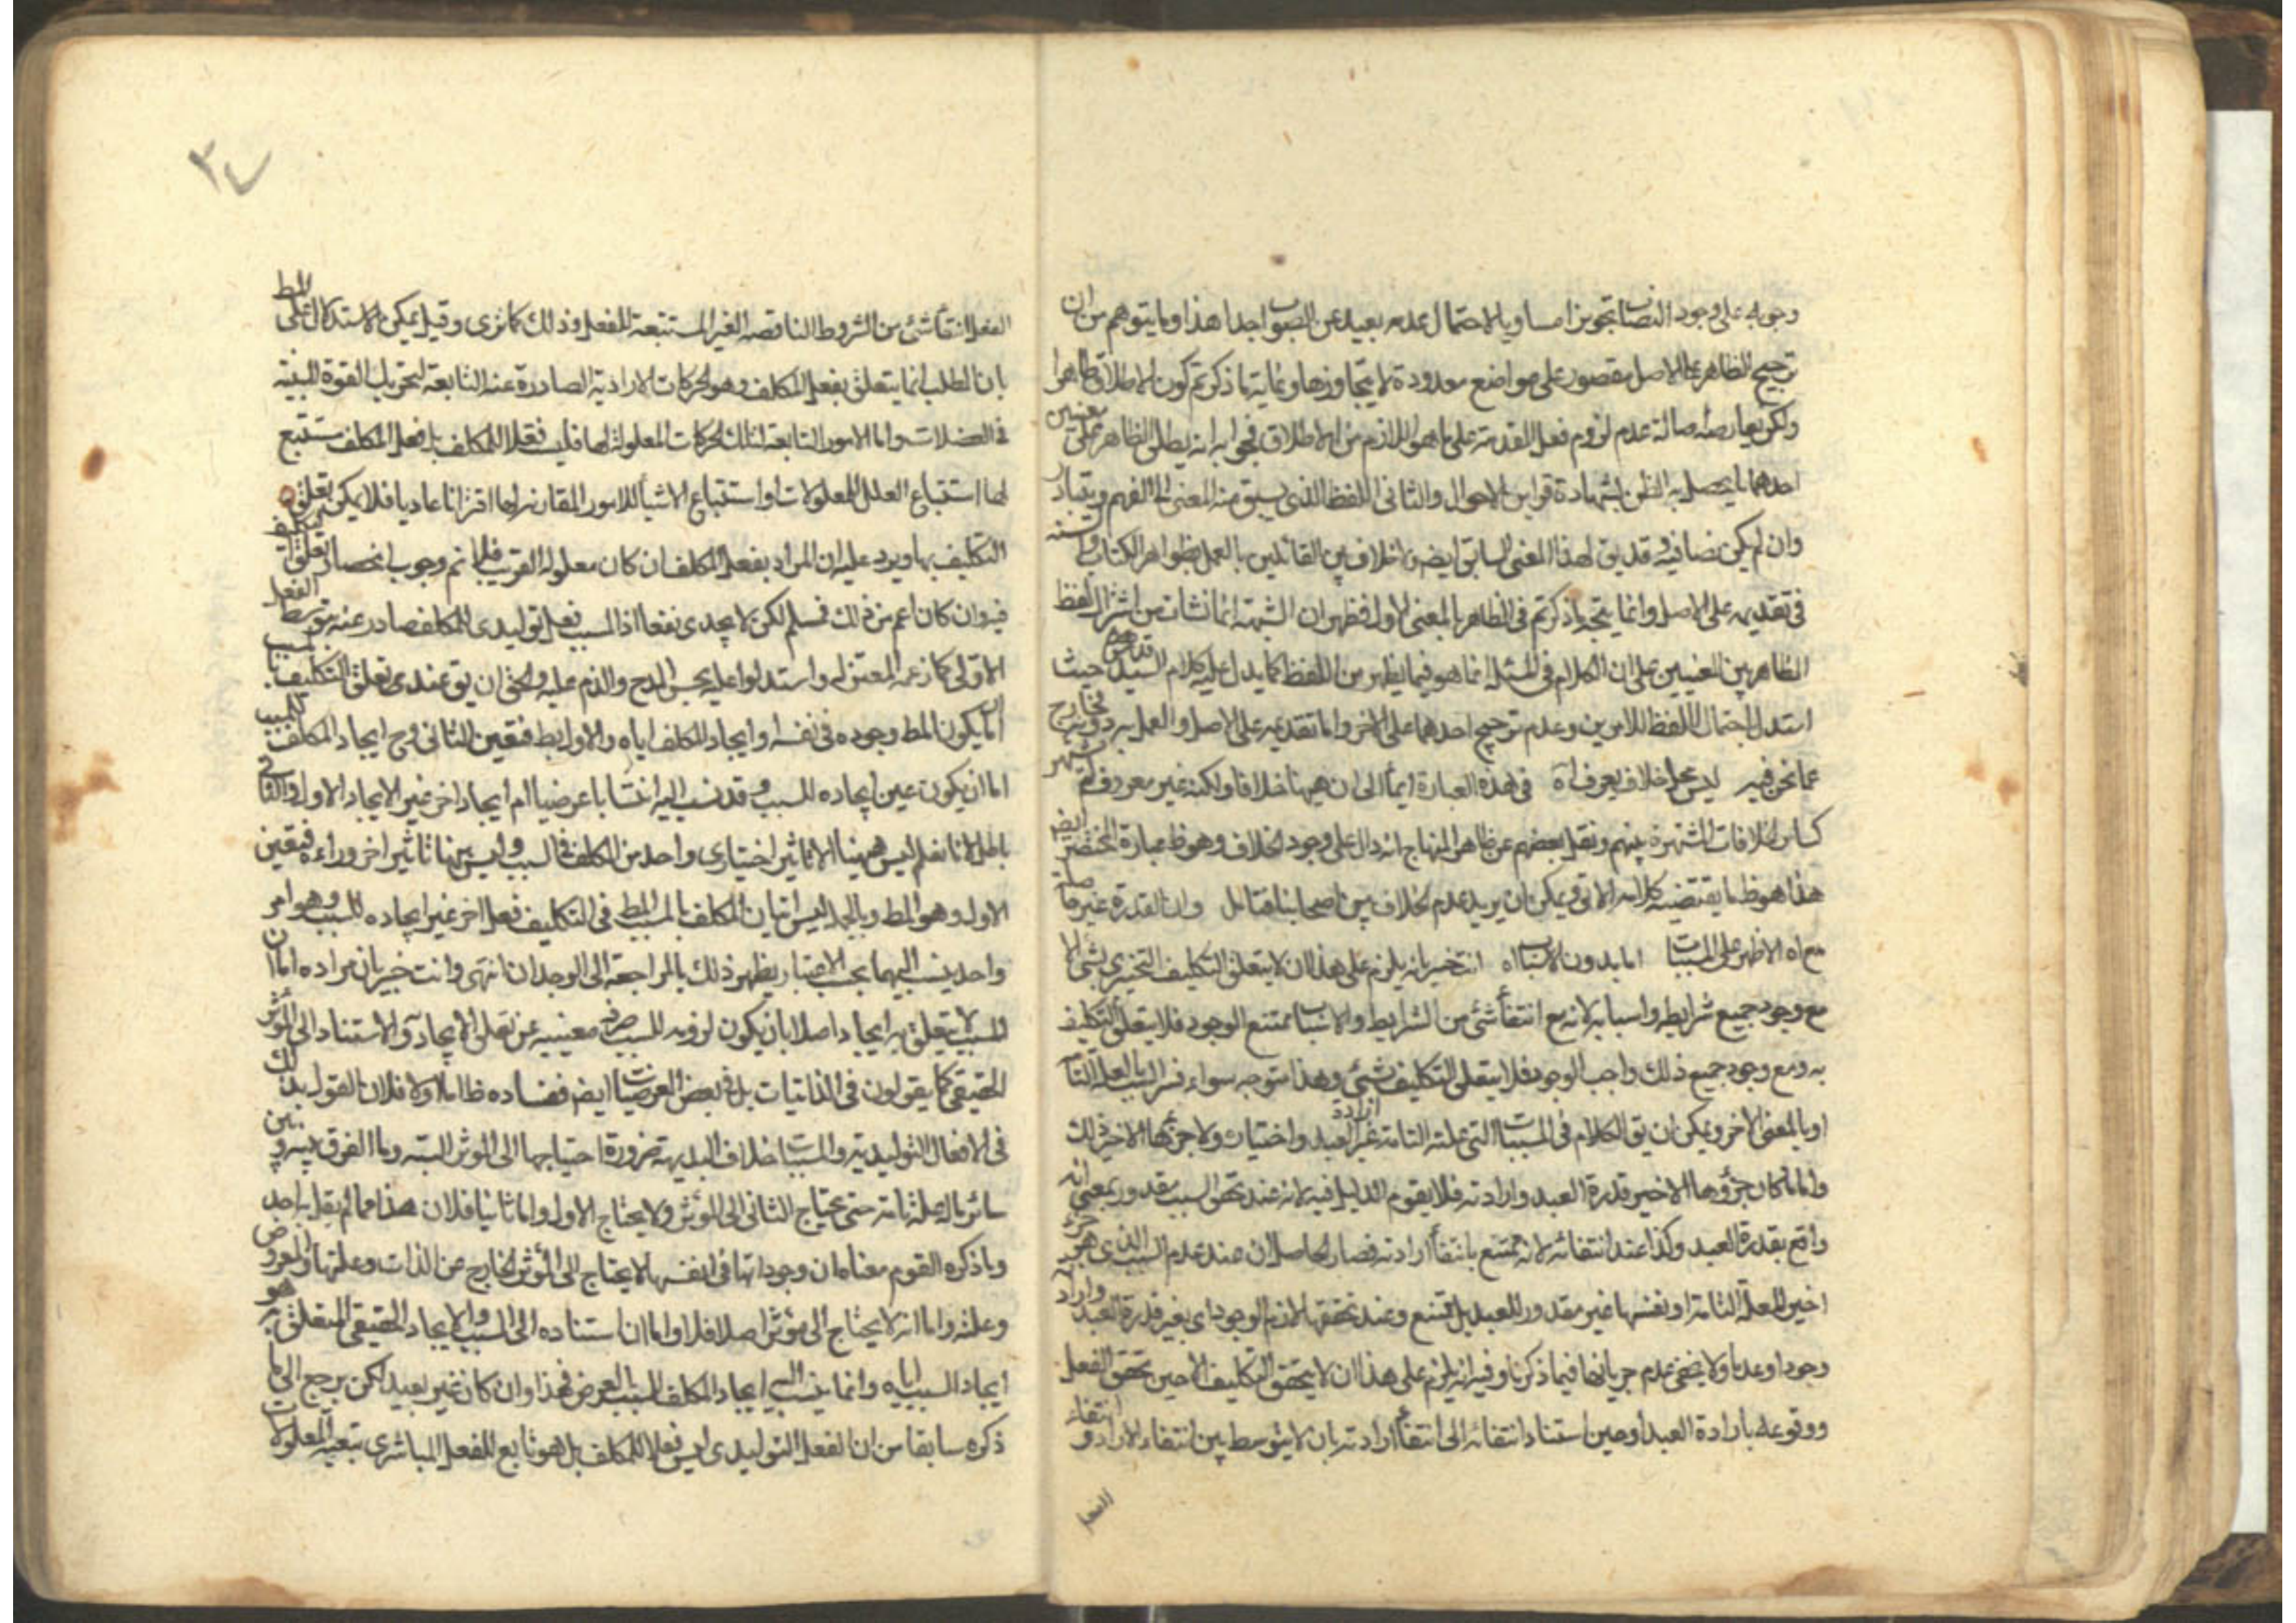 وجوبه على وجود النصاب تجويزا مساويا لاحتمال عدمه بعيد عن الصواب جدا هذا وما يتوهم من ان
ترجيح الظاهر على الاصل مقصور على مواضع معدودة لا يتجاوزها وغاية ما ذكرتم كون الاطلاق ظاهرا
ولكن يعارضه اصالة عدم لزوم فعل المقدمة على ما هو اللازم من الاطلاق فجوابه انه يطلق الظاهر على معنيين
احدهما ما يحصل به الظن بشهادة قراين الاحوال والثانى اللفظ الذى يسبق منه المعنى الى الفهم ويتبادر
وان لم يكن نصا فيه وقد يق لهذا المعنى السابق ايضم ولا خلاف بين القائلين بالعمل بظواهر الكتاب والسنه
فى تقديمه على الاصل وانما يتجه ما ذكرتم فى الظاهر بالمعنى الاول فظهر ان الشبهة انما نشات من اشتراك لفظ
الظاهر بين المعنيين على ان الكلام فى المسئلة انما هو فيما يظهر من اللفظ كما يدل عليه كلام السيد قدس سره حيث
استدل باحتمال اللفظ للامرين وعدم ترجيح احدهما على الاخر واما تقديمه على الاصل والعمل به دونه خارج
عما نحن فيه ليس محل خلاف يعرف اه فى هذه العبارة ايمأ الى ان ههنا خلافا ولكنه غير معروف لم يشتهر
كساير الخلافات المشتهرة بينهم ونقل بعضهم عن ظاهر المنهاج انه دال على وجود الخلاف وهو ظ عبارة المختصر ايضم
هذا هو ظ ما يقتضيه كلامه الاتى ويمكن ان يريد عدم الخلاف بين اصحابنا فتامل وان القدرة غير حاصلة
مع اه الاظهر على المسببات اما بدون الاسباب اه انت خبير بانه يلزم على هذا ان لا يتعلق التكليف التخييرى بشئ الا
مع وجود جميع شرايطه واسبابه لانه مع انتفأ شئ من الشرايط والاسباب ممتنع الوجود فلا يتعلق التكليف
به ومع وجود جميع ذلك واجب الوجود فلا يتعلق التكليف بشئ وهذا متوجه سواء فسر السبب بالعلة التامة
او بالمعنى الاخر ويمكن ان يق الكلام فى المسببات التى علته التامة غير ارادة العبد واختياره ولا جزئها الاخير ذلك
واما ما كان جزؤها الاخير قدرة العبد وارادته فلا يقوم الدليل فيه لانه عند تحقق السبب مقدور بمعنى انه
واقع بقدرة العبد وكذا عند انتفائه لانه ممتنع بانتفأ ارادته فصار الحاصل ان عند عدم السبب الذى هو جزء
اخير للعلة التامة او نفسها غير مقدور للعبد بل ممتنع وعند تحققها لازم الوجود اى بغير قدرة العبد وارادته
وجودا وعدما ولا يخفى عدم جريانها فيما ذكرنا وفيه انه يلزم على هذا ان لا يتحقق التكليف الا حين تحقق الفعل
ووقوعه بارادة العبد او حين استناد انتفائه الى انتفاء ارادته بان لا يتوسط بين انتفاء الارادة وانتفاء
الفعل
٣٤
الفعل انتفأ شئ من الشروط الناقصه الغير المستتبعة للفعل وذلك كما ترى وقيل يمكن الاستدلال على المط
بان الطلب انما يتعلق بفعل المكلف وهو الحركات الارادية الصادرة عنه التابعة لتحريك القوة المنبثة
فى العضلات واما الامور التابعة لتلك الحركات المعلولة لها فليست فعلا للمكلف بل فعل المكلف مستتبع
لها استتباع العلل للمعلولات او استتباع الاشيأ للامور المقارنة لها اقترانا عاديا فلا يمكن تعلق
التكليف بها ويرد عليه ان المراد بفعل المكلف ان كان معلوله القريب فلا نم وجوب انحصار تعلق التكليف
فيه وان كان اعم من ذلك فمسلم لكن لا يجدى نفعا اذ المسبب فعل توليدى للمكلف صادر عنه بتوسط الفعل
الاولى كما زعمه المعتزله واستدلوا عليه بحسن المدح والذم عليه والحق ان يق عندى تعلق التكليف بالمسبب
اما ان يكون المط وجوده فى نفسه او ايجاد المكلف اياه والاول بط فتعين الثانى وح ايجاد المكلف للمسبب
اما ان يكون عين ايجاده للسبب وقد نسب اليه انتسابا عرضيا ام ايجاد اخر غير الايجاد الاول والثانى
باطل لانا نعلم ليس ههنا الا تاثير اختيارى واحد من المكلف فى السبب وليس ههنا تاثير اخر وراءه فتعين
الاول وهو المط وبالجملة ليس اتيان المكلف بالمسبب المط فى التكليف فعلا اخر غير ايجاده للسبب وهو امر
واحد ينسب اليهما بحسب الاعتبار يظهر ذلك بالمراجعة الى الوجدان انتهى وانت خبير بان مراده اما ان
المسبب لا يتعلق به ايجاد اصلا بان يكون لزومه للسبب مغنيه عن تعلق الايجاد والاستناد الى المؤثر
الحقيقى كما يقولون فى الذاتيات بل فى بعض العرضيات ايضم ففساده ظ اما اولا فلان القول بذلك
فى الافعال التوليدية والمسببات خلاف البديهة ضرورة احتياجها الى المؤثر البتة وما الفرق بينه وبين
سائر ماله علة تامة حتى يحتاج الثانى الى المؤثر ولا يحتاج الاول واما ثانيا فلان هذا مما لم يقل به احد
وما ذكره القوم معناه ان وجوداتها فى انفسها لا يحتاج الى المؤثر الخارج عن الذات وعلتها والمعروض
وعلته واما انه لا يحتاج الى مؤثر اصلا فلا واما ان استناده الى السبب والايجاد الحقيقى المتعلق به هو
ايجاد السبب اياه وانما ينسب اليه ايجاد المكلف للسبب بالعرض فهذا وان كان غير بعيد لكن يرجع الى ما
ذكره سابقا من ان الفعل التوليدى ليس فعلا للمكلف بل هو تابع للفعل المباشرى تبعية المعلولات